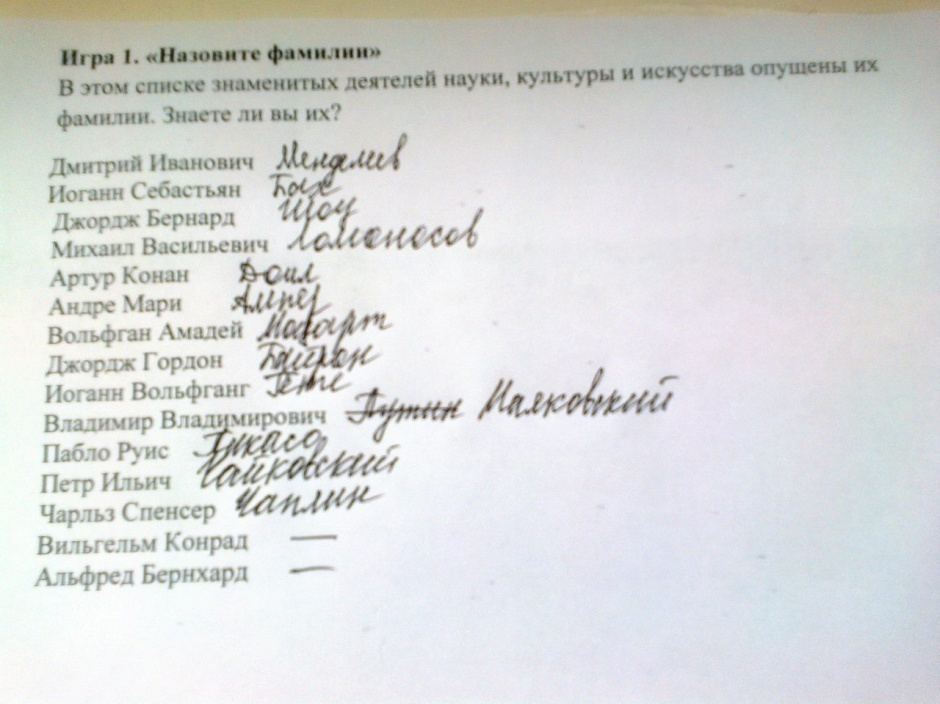 Игра 1. «Назовите фамилии»
В этом списке знаменитых деятелей науки, культуры и искусства опущены их
фамилии. Знаете ли вы их?
Дмитрий Иванович Менделеев
Иоганн Себастьян Бах
Джордж Бернард Шоу
Михаил Васильевич Ломоносов
Артур Конан Доил
Андре Мари Ампер
Вольфган Амадей Моцарт
Джордж Гордон Байрон
Иоганн Вольфганг Гёте
Владимир Владимирович Путин Маяковский
Пабло Руис Пикассо
Петр Ильич Чайковский
Чарльз Спенсер Чаплин
Вильгельм Конрад —
Альфред Бернхард —